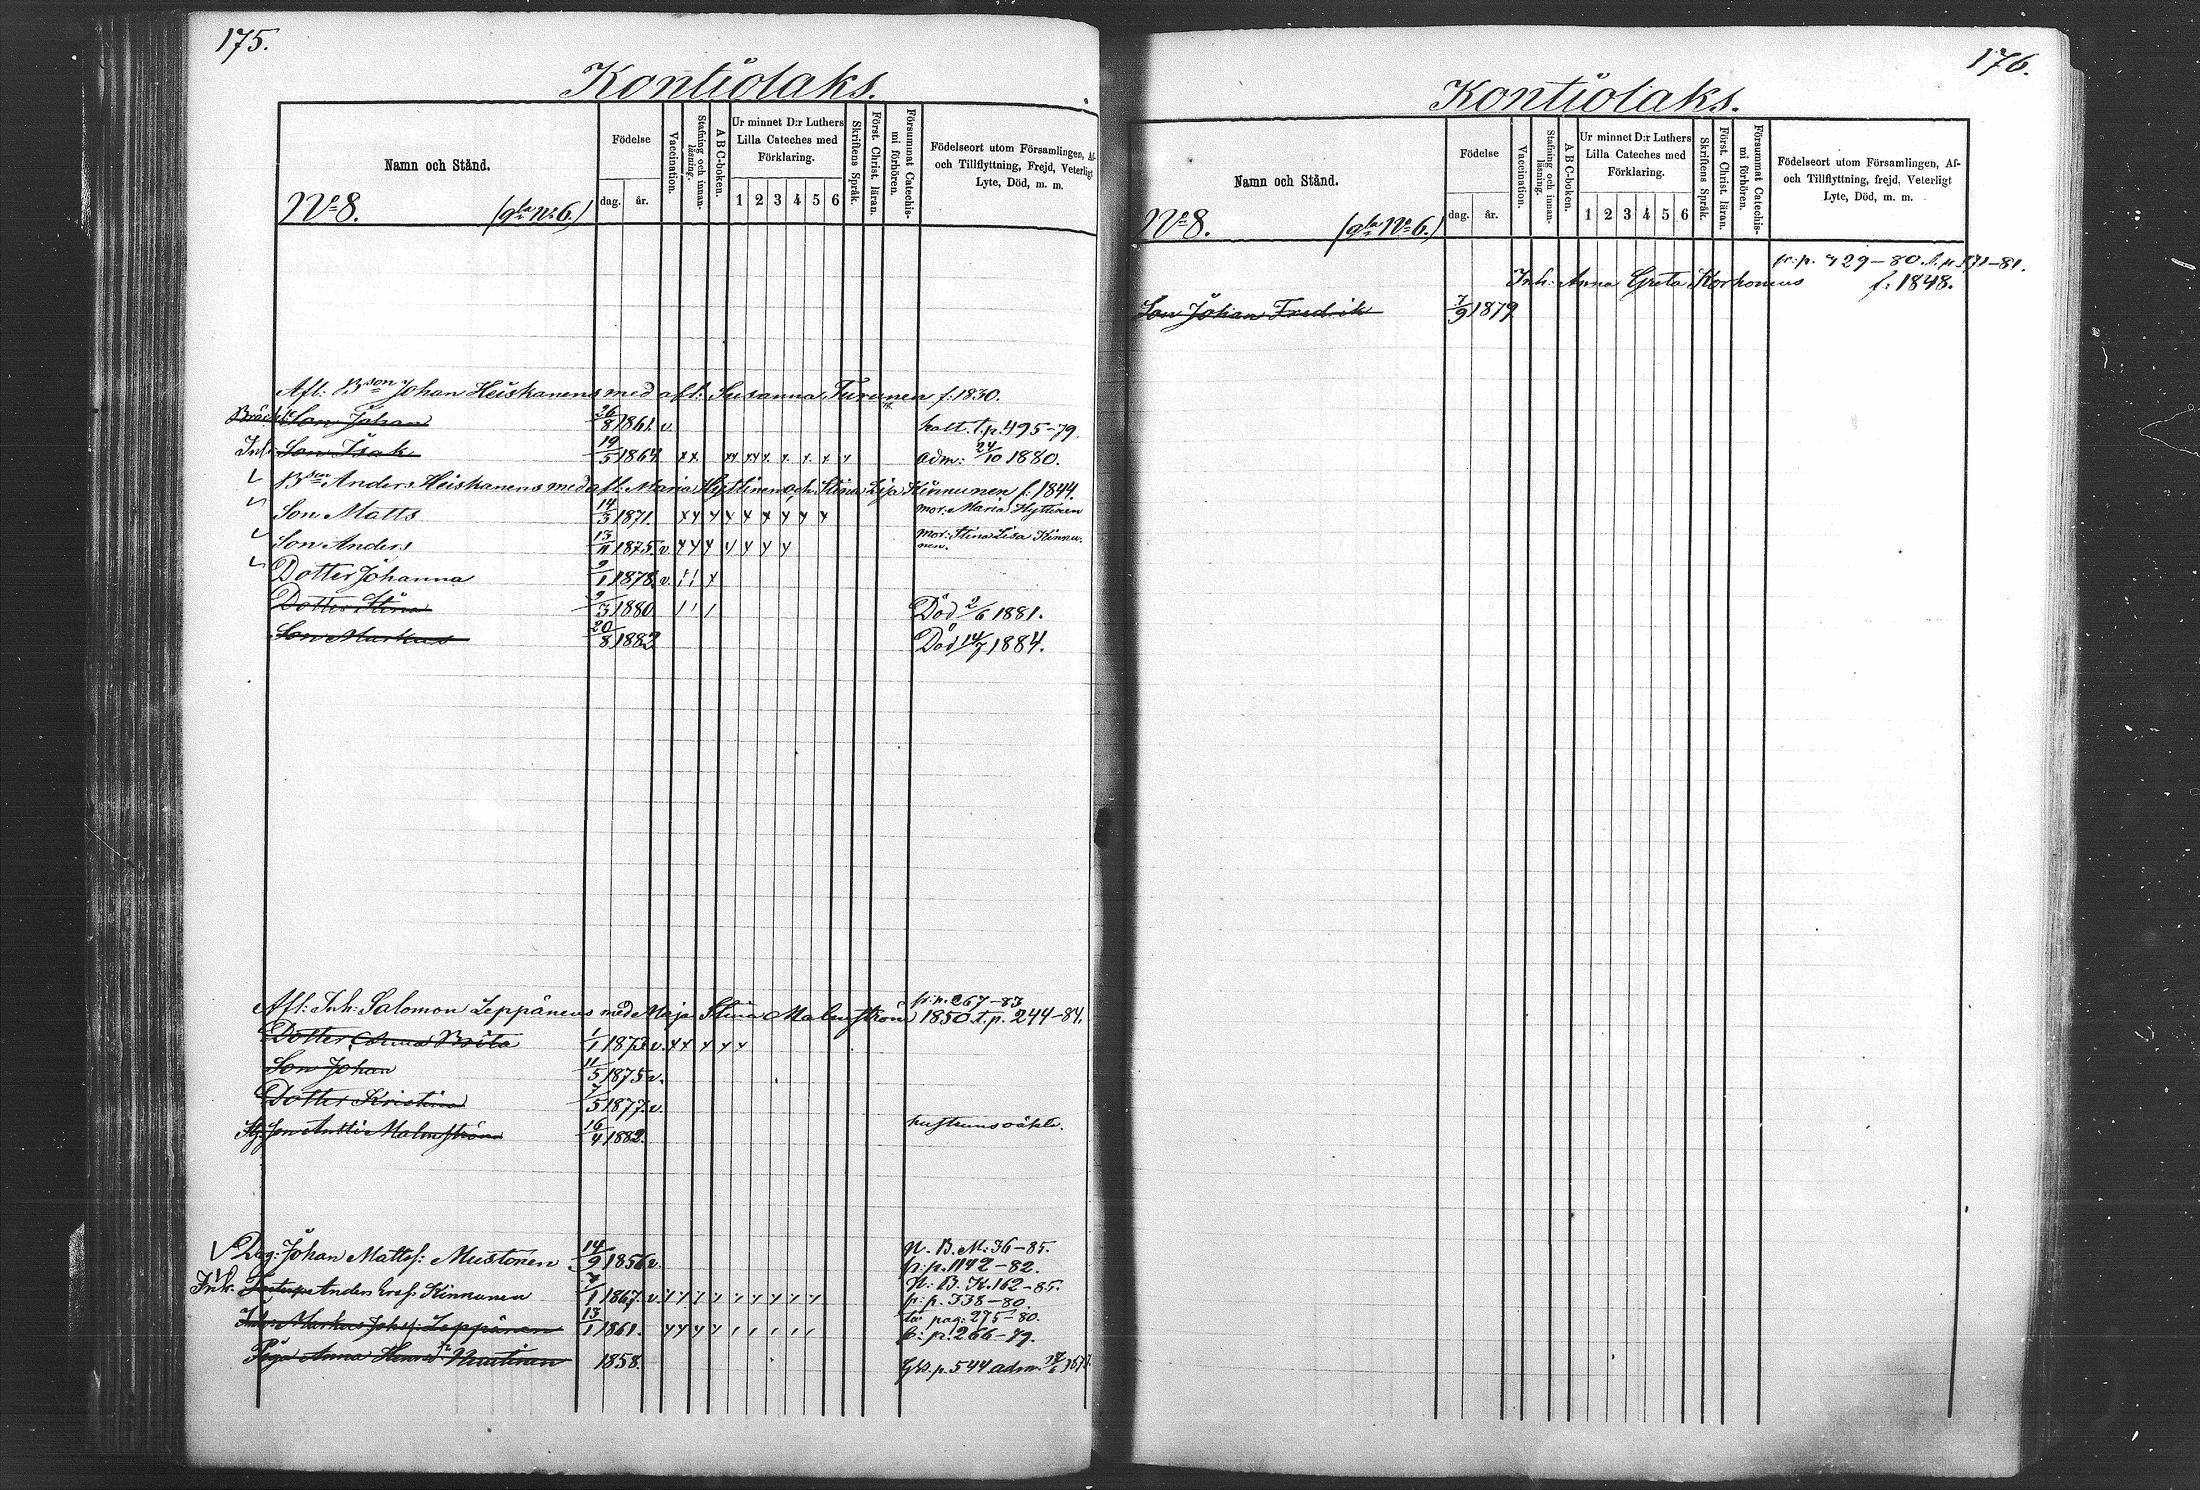 175.
Kontiolaks.
Namn och Stånd.
Födelse
dag. år.
Vaccination.
Stafning och innan-läsning.
A B C-boken.
Ur minnet D:r Luthers
Lilla Cateches med
Förklaring.
1 2 3 4 5 6
Skriftens Språk.
Först. Christ. läran.
Försummat Catechis-mi förhören.
Födelseort utom Församlingen, Af-
och Tillflyttning, Frejd, Veterligt
Lyte, Död, m. m.
No 8. (gla No 6.)
Afl: Bson Johan Heiskanens med afl: Susanna Turunen f: 1830.
Son Johan 26/8 1861. v. t. p. 495-79.
Inh. Son Isak 19/5 1864 xx xx xx x x x x adm: 24/10 1880.
Bson Anders Heiskanens med afl: Maria Hyttinen och Stina Lisa Kinnunen f: 1844.
Son Matts 14/3 1871. x x x x x x x x x mor: Maria Hyttinen
Son Anders 13/11 1875. v. x x x x x x x mor: Stina Lisa Kinnu-
nen.
Dotter Johanna 9/1 1878. v. x
Dotter Stina 9/3 1880 Död 2/6 1881.
Son Markus 20/8 1882 Död 14/7 1884.
fr: p. 267-83
Afl: Inh: Salomon Leppänens med Maja Stina Malmström 1850. t. p. 244-84.
Dotter Anna Brita 1/1 1873. v. x x x x x
Son Johan 11/5 1875 v.
Dotter Kristina 7/5 1877. v.
Son Antti Malmström 16/4 1882. hustruns oäkta.
N. B. M: 36-85.
Johan Mattsf: Mustonen 14/9 1856 v. fr: p. 1142-82.
N: B. K. 162-85.
Inh. Anders Kinnunen 1/1 1867. v. fr: p. 338-80.
pag: 275-80.
Markus Johsf: Leppänen 13/1 1861. fr: p. 266-79.
Piga Anna 1858. p. 544 adm.
176.
Kontiolaks.
Namn och Stånd.
Födelse
dag. år.
Vaccination.
Stafning och innan-läsning.
A B C-boken.
Ur minnet D:r Luthers
Lilla Cateches med
Förklaring.
1 2 3 4 5 6
Skriftens Språk.
Först. Christ. läran.
Försummat Catechis-mi förhören.
Födelseort utom Församlingen, Af-
och Tillflyttning, frejd, Veterligt
Lyte, Död, m. m.
No 8. (gla No 6.)
fr: p. 429-80. t. p. 171-81.
Inh: Anna Greta Korhonens f: 1848.
Son Johan Fredrik 7/9 1879.